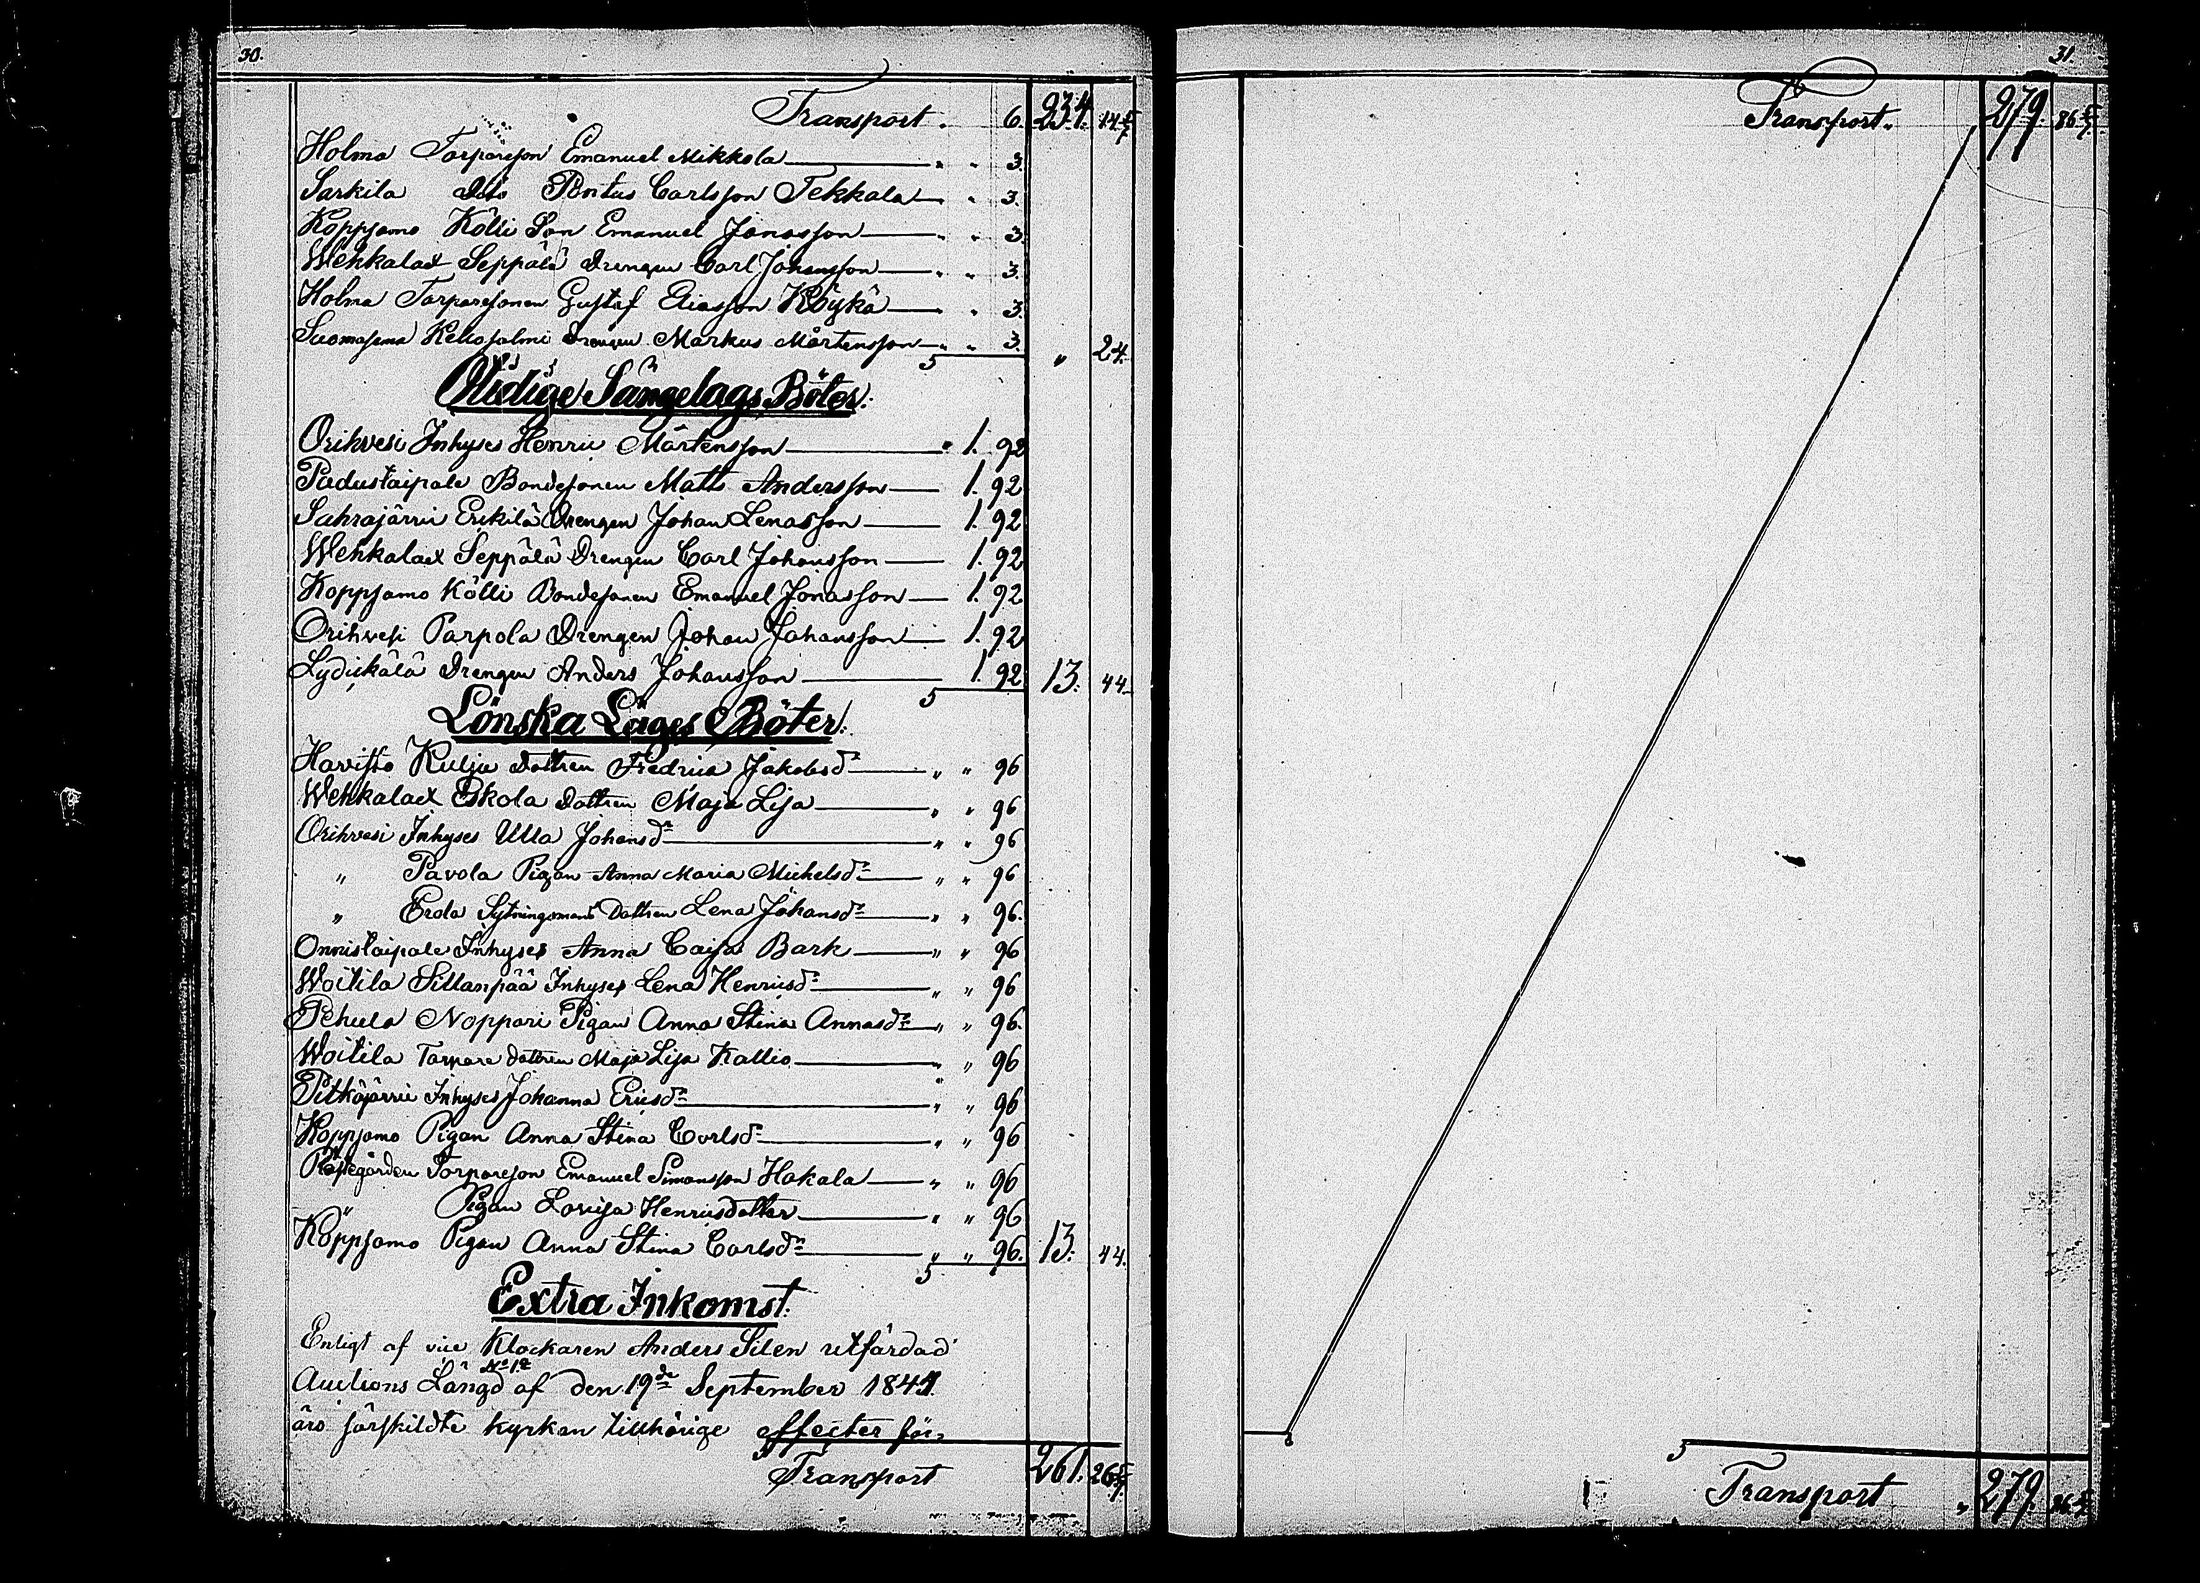 30.
Transport. 6. 234. 14 5/7
Holma Torpareson Emanuel Mikkola " " 3.
Sarkila Dito Pontus Carlsson Tekkala " 3.
Koppsamo Kölli Son Emanuel Jonasson " " 3.
Wehkalax Seppälä Drengen Carl Johansson " " 3.
Holma Torparesonen Gustaf Eliasson Köykä " 3.
Suomasema Keliosalmi Drengen Markus Mårtensson " " 3. " 24.
Otidige Sängelags Böter:
Orihvesi Inhyses Henric Mårtensson " 1. 92
Padustaipale Bondesonen Matts Andersson 1. 92
Sahrajärvi Erkilä Drengen Johan Lenasson 1. 92
Wehkalax Seppälä Drengen Carl Johansson 1. 92
Koppsamo Kölli Bondesonen Emanuel Jonasson 1. 92
Orihvesi Parpola Drengen Johan Johansson 1. 92
Lydickälä Drengen Anders Johansson 1. 92 13. 44.
Lönska Läges Böter:
Havisto Kulju Dottren Fredrica Jakobsdr " " 96
Wehkalax Eskola Dottren Maja Lisa " " 96
Orihvesi Inhyses Ulla Johansdr " " 96
" Pavola Pigan Anna Maria Michelsdr " " 96
" Erola Sytningsmans Dottren Lena Johansdr " " 96.
Onnistaipale Inhyses Anna Caisa Bark " " 96
Woitila Sillanpää Inhyses Lena Henricsdr " " 96
Pehula Noppari Pigan Anna Stina Annasdr " " 96.
Woitila Torpare dottren Maja Lisa Kallio " " 96
Pitkäjärvi Inhyses Johanna Ericsdr " " 96
Koppsamo Pigan Anna Stina Carlsdr " " 96
Prästgården Torpareson Emanuel Simonsson Hakala " " 96
" Pigan Lovisa Henricsdotter " " 96
Koppsamo Pigan Anna Stina Carlsdr " " 96. 13. 44.
Extra Inkomst.
Enligt af vice Klockaren Anders Silen utfärdad
Auctions Längd No 1a af den 19de September 1847.
äro särskildte kyrkan tillhörige effecter för=
Transport 261. 26 5/7.
31.
Transport. 279. 86 5/7.
Transport " 279. 86 5/7